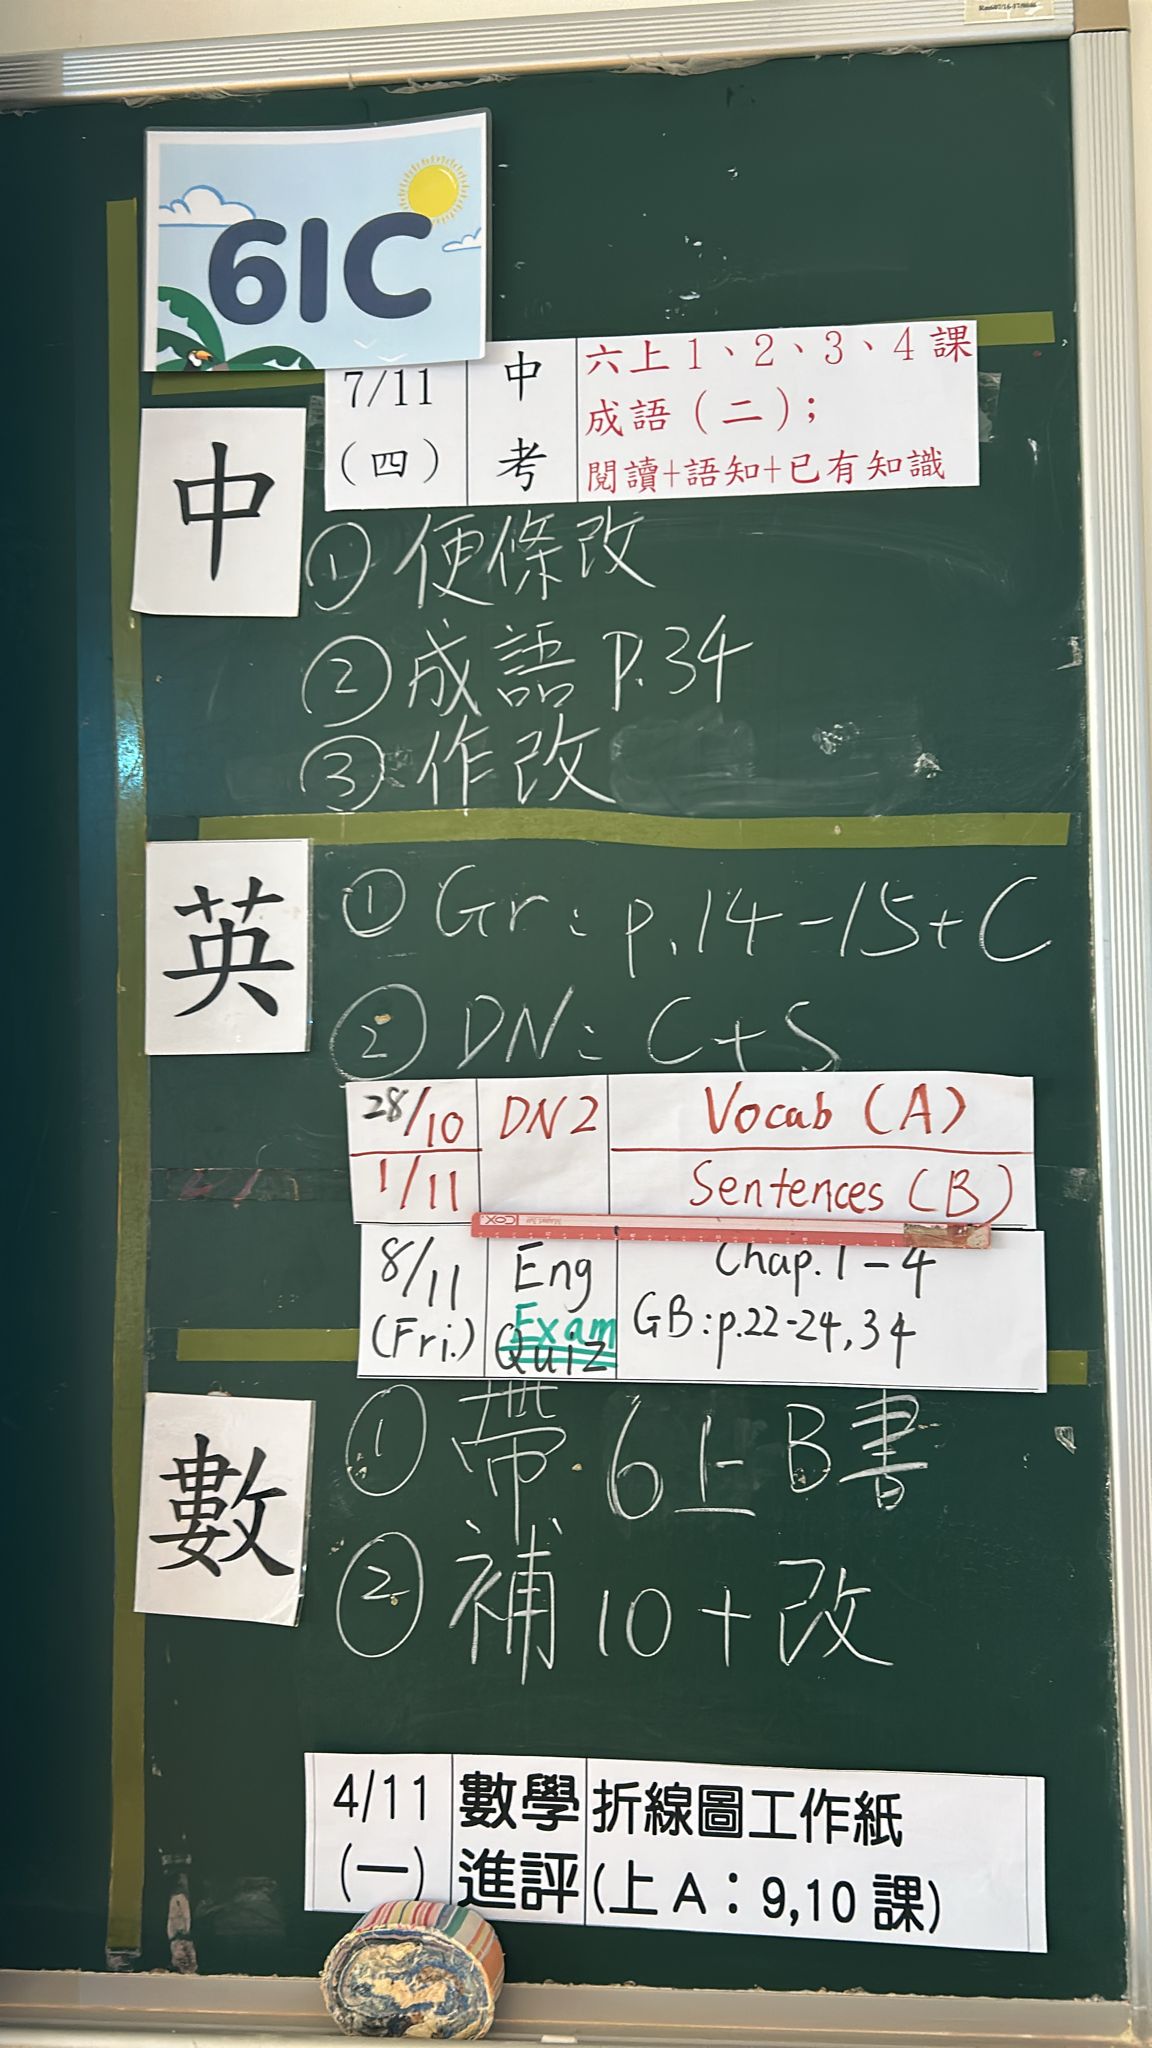 61C
7/11
(四)
中
考
六上1、2、3、4課
成語(二);
閱讀+語知+已有知識
中
① 便條改
② 成語 P.34
③ 作改
英
① Gr: p.14-15+C
② DN: C+S
28/10
1/11
DN2
Vocab (A)
Sentences (B)
COX
8/11
(Fri.)
Eng
Exam
Quiz
Chap. 1-4
GB: p.22-24, 34
數
① 帶 6上B書
② 補10+改
4/11
(一)
數學
進評
折線圖工作紙
(上A:9,10課)